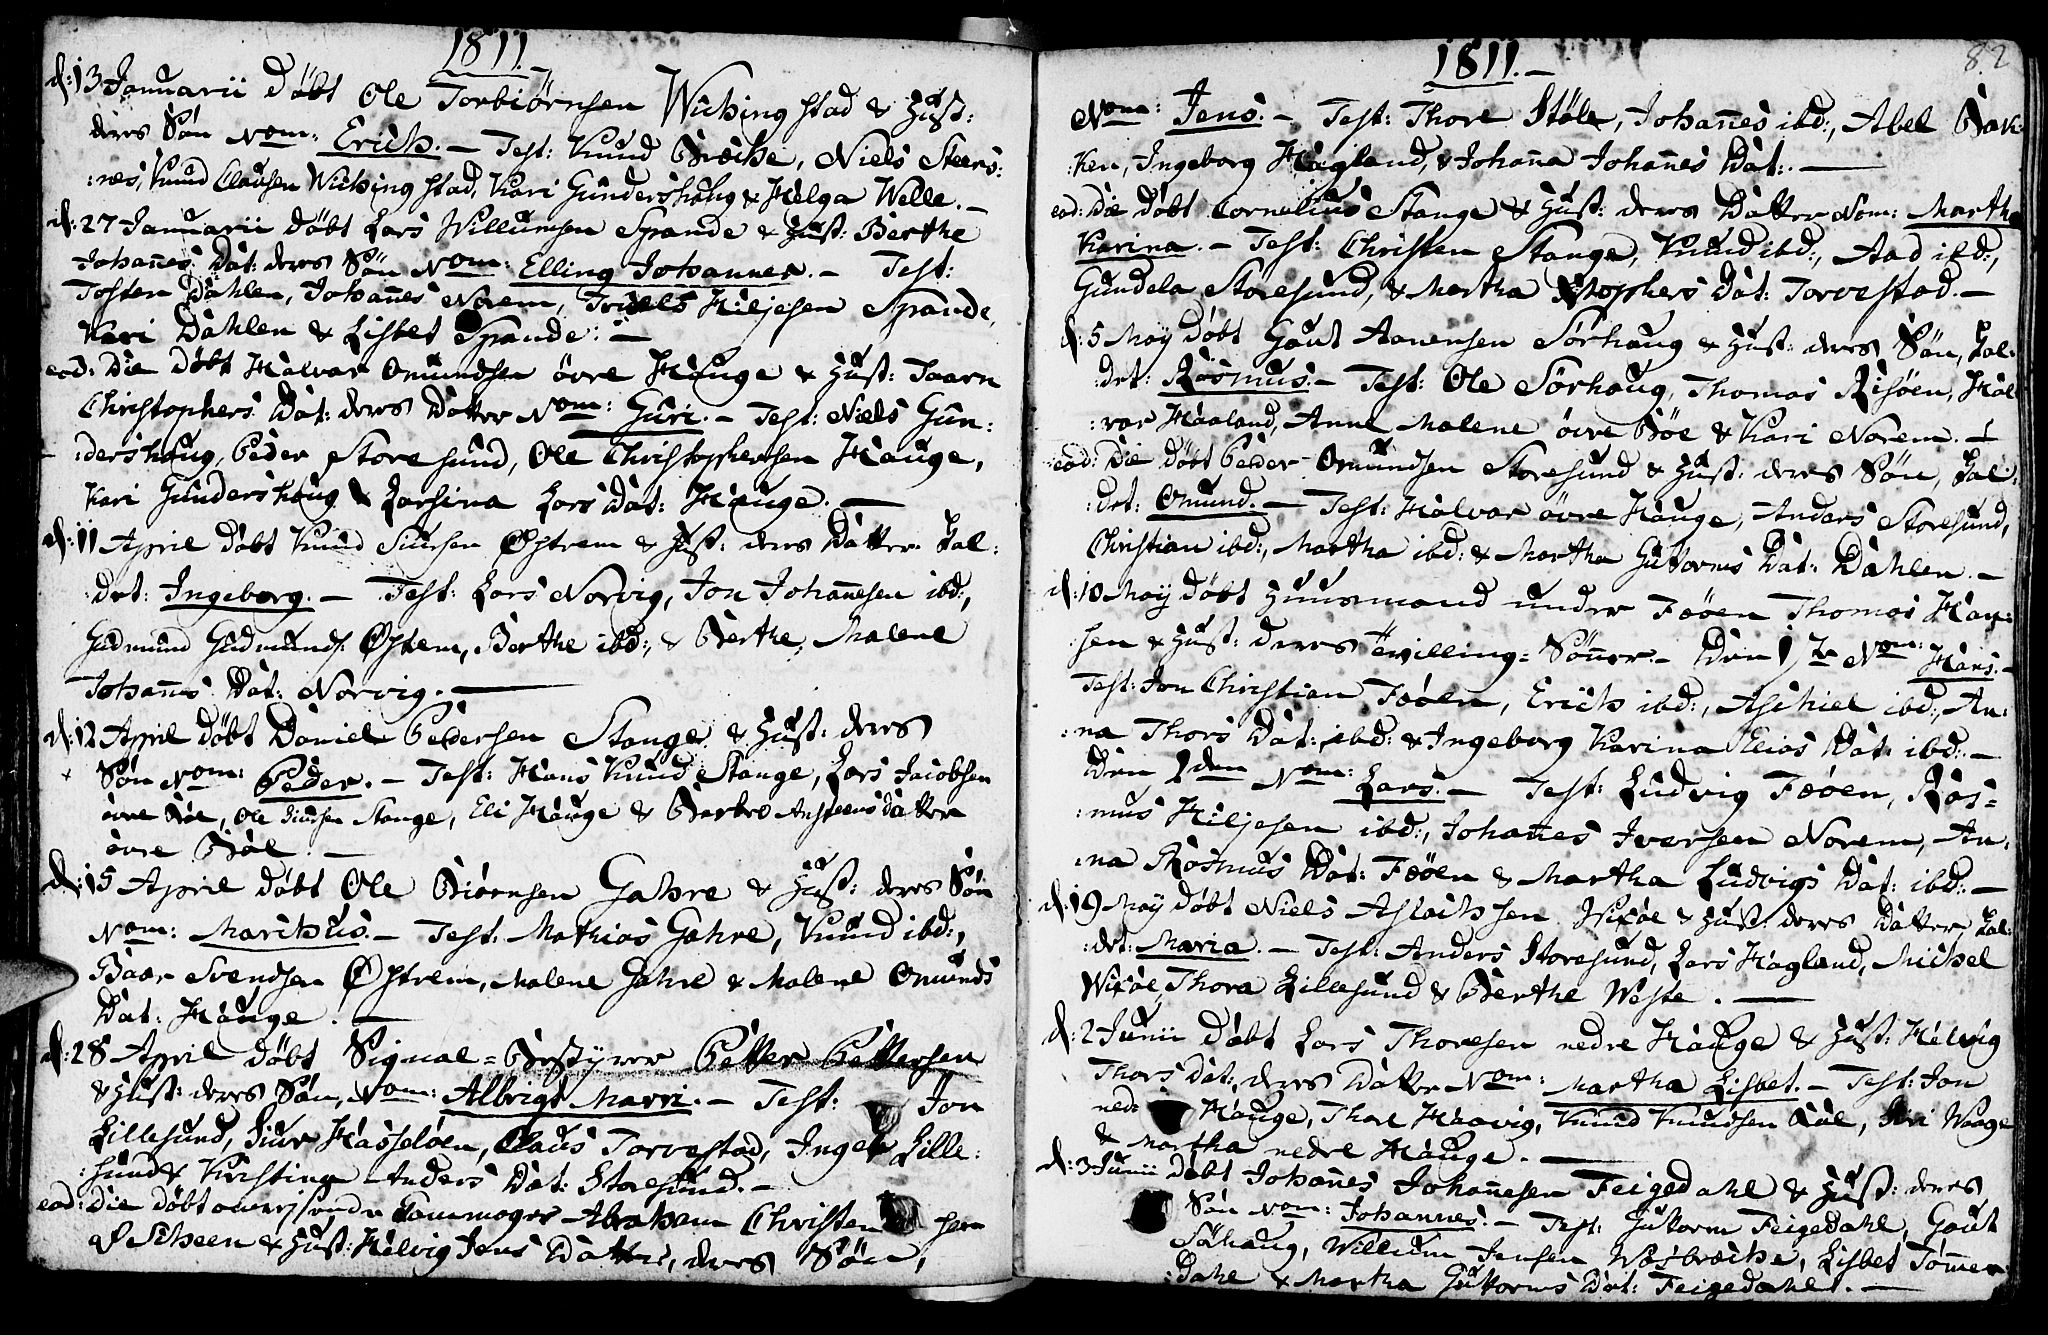 1811.
d: 13 Januarii døbt Ole Torbiørnsen Wichingstad & Hust:
deres Søn Nom: Erich. — Test: Knud Bræche, Niels Steens:
:næs, Knud Clausen Wichingstad, Kari Gundershaug & Helga Welle. —
d: 27 Januarii døbt Lars Willumsen Spande & Hust: Berthe
Johan̄es Dat: deres Søn Nom: Elling Johannes. — Test:
Tosten Dahlen, Johan̄es Norem, Hiljesen Spande,
Kari Dahlen & Lisbet Spande: —
eod: Die døbt Halvar Omundsen øvre Hauge & Hust: Taarn
Christophers Dat: deres Datter Nom: Guri. — Test: Niels Gun:
:dershaug, Peder Storesund, Ole Christophersen Hauge,
Kari Gundershaug & Larsina Lars Dat: Hauge. —
d: 11 April døbt Knud Siursen Østrem & Hust: deres Datter kal:
:det: Ingeborg. — Test: Lars Norvig, Jon Johan̄esen ibd:,
Gudmund Gudmunds. Østem, Berthe ibd:, & Berthe Malene
Johan̄es Dat: Norvig. —
d: 12 April døbt Daniel Pedersen Stange & Hust: deres
Søn Nom: Peder. — Test: Hans Knud Stange, Lars Jacobsen
øvre Bøe, Ole Siursen Stange, Eli Hauge & Barbro Ansteens Datter
øvre Bøe. —
d: 15 April døbt Ole Biørnsen Gahre & Hust: deres Søn
Nom: Marchus. — Test: Mathias Gahre, Knud ibd:,
Baar Svendsen Østrem, Malene Gahre & Malene Omunds
Dat: Hauge. —
d: 28 April døbt Signal=Bestyrer Petter Pettersen
& Hust: deres Søn, Nom: Albrigt Marri. — Test: Jon
Lillesund, Siur Hasseløen, Claus Torvestad, Inger Lille:
:sund & Kirstina Anders Dat: Storesund. —
eod: Die døbt omreisende Abraham Christen sen
& Hust: Helvig Jens Datter, deres Søn,
1811. —
82
Nom: Jens. — Test: Thore Støle, Johan̄es ibd:, Abel Bak:
ken, Ingeborg Hagland, & Johan̄a Johan̄es Dat: —
eod: Die døbt Cornelius Stange & Hust: deres Datter Nom: Martha
Karina. — Test: Christen Stange, Knud ibd:, Aad ibd:,
Gundela Storesund, & Martha Stophers Dat: Torvestad. —
d: 5 Maÿ døbt Gout Aanensen Sørhaug & Hust: deres Søn, kal:
:det: Rasmus. — Test: Ole Sørhaug, Thomas Risøen, Hal
:var Haaland, Anne Malene øvre Bøe & Kari Norem. —
eod: Die døbt Peder Omundsen Storesund & Hust: deres Søn, kal:
:det: Omund. — Test: Halvar øvre Hauge, Anders Storesund,
Christian ibd:, Martha ibd: & Martha Guttorms Dat: Dahlen. —
d: 10 Maÿ døbt Huusmand under Føøen Thomas Han:
:sen & Hust: deres Tvilling=Sønner. — Den 1te Nom: Hans. —
Test: Jon Christian Føøen, Erich ibd:, Aschiel ibd:, An:
:na Thors Dat: ibd: & Ingeborg Karina Elias Dat: ibd: —
Den 2den Nom: Lars. — Test: Ludvig Føøen, Ras=
:mus Hiljesen ibd:, Johan̄es Iversen Norem, An:
:na Rasmus Dat: Føøen & Martha Ludvigs Dat: ibd: —
d: 19 Maÿ døbt Niels Aslachsen Wixøe & Hust: deres Datter, kal:
:det: Maria. — Test: Anders Storesund, Lars Hagland, Michel
Wixøe, Thora Lillesund & Berthe Weste. —
d: 2 Junii døbt Lars Thoresen nedre Hauge & Hust: Helvig
Thors Dat:, deres Datter Nom: Martha Lisbet. — Test: Jon
ned: Hauge, Thore Haavig, Knud Knudsen Bøe, Siri Waage
& Martha nedre Hauge. —
d: 3 Junii døbt Johan̄es Johan̄esen Feigedahl & Hust: deres
Søn Nom: Johannes. — Test: Guttorm Feigedahl, Gout
Sørhaug, Willum Jensen Wasbræche, Lisbet Tømmer
:dahl & Martha Guttorms Dat: Feigedahl. —